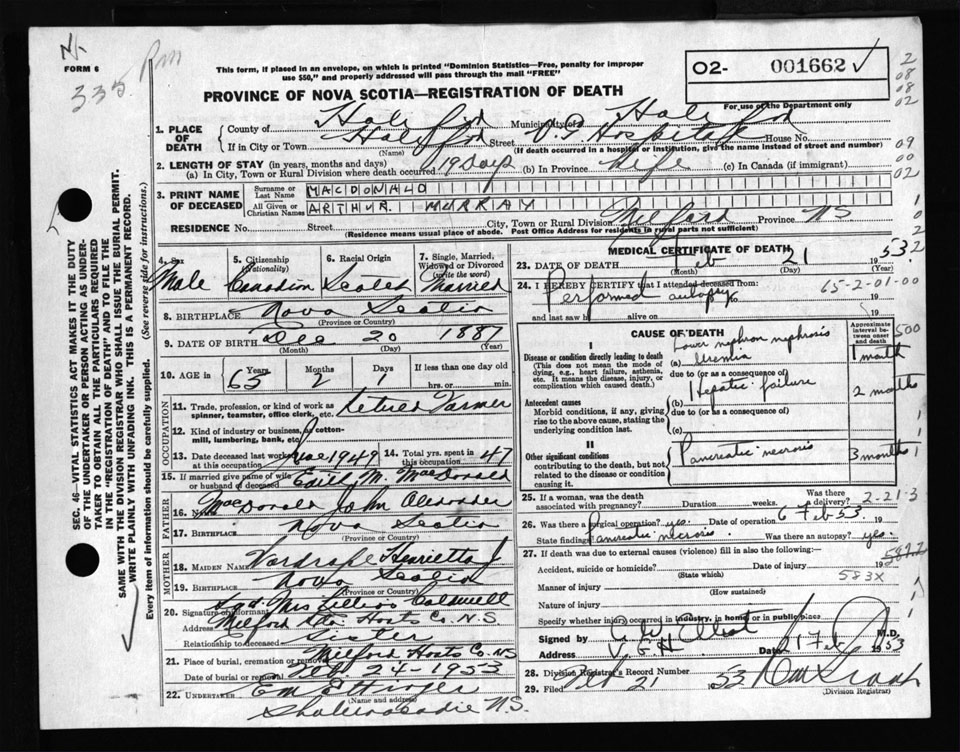 N-
FORM 6
335
This form, if placed in an envelope, on which is printed "Dominion Statistics—Free, penalty for improper
use $50," and properly addressed will pass through the mail "FREE"
PROVINCE OF NOVA SCOTIA—REGISTRATION OF DEATH
O2- 001662 ✓
For use of the Department only
2
08
08
02
09
00
02
SEC. 46—VITAL STATISTICS ACT MAKES IT THE DUTY
OF THE UNDERTAKER OR PERSON ACTING AS UNDER-
TAKER TO OBTAIN ALL THE PARTICULARS REQUIRED
IN THE "REGISTRATION OF DEATH" AND TO FILE THE
SAME WITH THE DIVISION REGISTRAR WHO SHALL ISSUE THE BURIAL PERMIT.
WRITE PLAINLY WITH UNFADING INK. THIS IS A PERMANENT RECORD.
Every item of information should be carefully supplied. (See reverse side for instructions.)
1. PLACE OF DEATH
County of Halifax Municipality of Halifax
If in City or Town Halifax Street V.G. Hospital House No.
(Name) (If death occurred in a hospital or institution, give the name instead of street and number)
2. LENGTH OF STAY (in years, months and days)
(a) In City, Town or Rural Division where death occurred 19 Days (b) In Province Life (c) In Canada (if immigrant)
3. PRINT NAME OF DECEASED
Surname or Last Name MACDONALD
All Given or Christian Names ARTHUR MURRAY
RESIDENCE No. Street City, Town or Rural Division Milford Province NS
(Residence means usual place of abode. Post Office Address for residents in rural parts not sufficient)
4. Sex Male
5. Citizenship (Nationality) Canadian
6. Racial Origin Scotch
7. Single, Married, Widowed or Divorced (write the word) Married
8. BIRTHPLACE Nova Scotia
(Province or Country)
9. DATE OF BIRTH Dec 20 1887
(Month) (Day) (Year)
10. AGE in 65 Years 2 Months 1 Days If less than one day old
hrs. or min.
OCCUPATION
11. Trade, profession, or kind of work as
spinner, teamster, office clerk, etc. Retired Farmer
12. Kind of industry or business, as cotton-
mill, lumbering, bank, etc.
13. Date deceased last worked at this occupation 1949 14. Total yrs. spent in this occupation 47
15. If married give name of wife or husband of deceased Edith M. MacDonald
FATHER
16. Name MacDonald John Alexander
17. Birthplace Nova Scotia
(Province or Country)
MOTHER
18. Maiden Name Wardrope Henrietta J
19. Birthplace Nova Scotia
(Province or Country)
20. Signature of informant Mrs Caldwell
Address Milford Hants Co. N.S
Relationship to deceased Sister
21. Place of burial, cremation or removal Milford Hants Co. NS
Date of burial or removal Feb 24-1953
22. UNDERTAKER E M Ettinger
(Name and address)
Shubenacadie N.S.
MEDICAL CERTIFICATE OF DEATH
23. DATE OF DEATH Feb 21 1953
(Month) (Day) (Year)
24. I HEREBY CERTIFY that I attended deceased from:
Performed autopsy to 19
65-2-01-00
and last saw h alive on 19
CAUSE OF DEATH
Approximate interval between onset and death
I
Disease or condition directly leading to death
(This does not mean the mode of
dying, e.g., heart failure, asthenia,
etc. It means the disease, injury, or
complication which caused death.)
Lower nephron nephrosis
(a) Uremia 1 month
due to (or as a consequence of)
Antecedent causes
Morbid conditions, if any, giving
rise to the above cause, stating the
underlying condition last.
(b) Hepatic failure 2 months
due to (or as a consequence of)
(c)
II
Other significant conditions
contributing to the death, but not
related to the disease or condition
causing it.
Pancreatic necrosis 3 months
25. If a woman, was the death
associated with pregnancy? Duration weeks. Was there a delivery?
2-21-3
26. Was there a surgical operation? yes. Date of operation 6 Feb 53 19
State findings Pancreatic necrosis. Was there an autopsy? yes
27. If death was due to external causes (violence) fill in also the following:—
5877
Accident, suicide or homicide? Date of injury 19
(State which)
583X
Manner of injury
(How sustained)
Nature of injury
Specify whether injury occurred in industry, in home, or in public place
Signed by Elliot M.D.
Address V.G.H. Date 21 Feb 1953
28. Division Registrar's Record Number
29. Filed Feb 21 53
(Division Registrar)